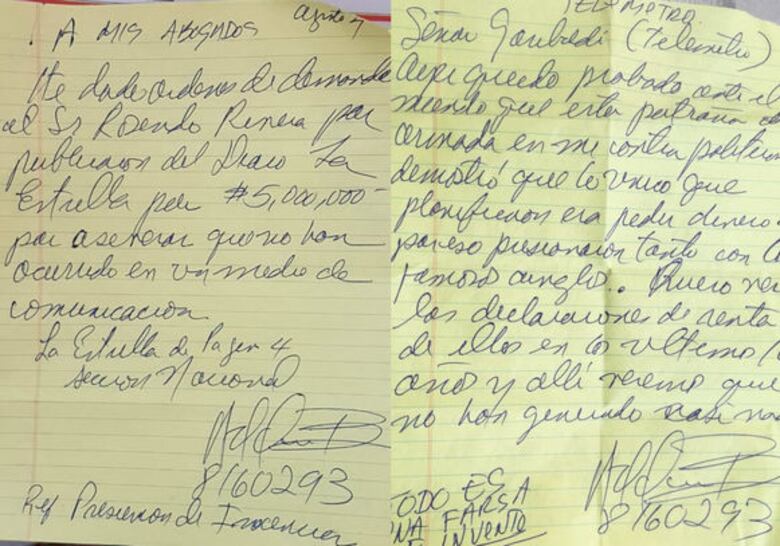 . A MIS ABOGADOS
Agosto 7
He dado ordenes de demandar
al Sr Rosendo Rivera por
publicacion del Diario La
Estrella por #5,000,000-
por aseverar que no han
ocurrido en un medio de
comunicacion
La Estrella de Pagen 4
seccion Nacional
8160293
Ref Presuncion de Inocencia
TELEMETRO
Señor Garibaldi (Telemetro)
Aqui quedo probado ante el
mundo que esta patraña
armada en mi contra
demostró que lo unico que
planificaron era pedir dinero
por eso presionaron tanto con
famoso arreglo.. Quiero ver
las declaraciones de renta
de ellos en los ultimos
años y alli veremos que
no han generado casi
8160293
TODO ES
FARSA
INVENTO